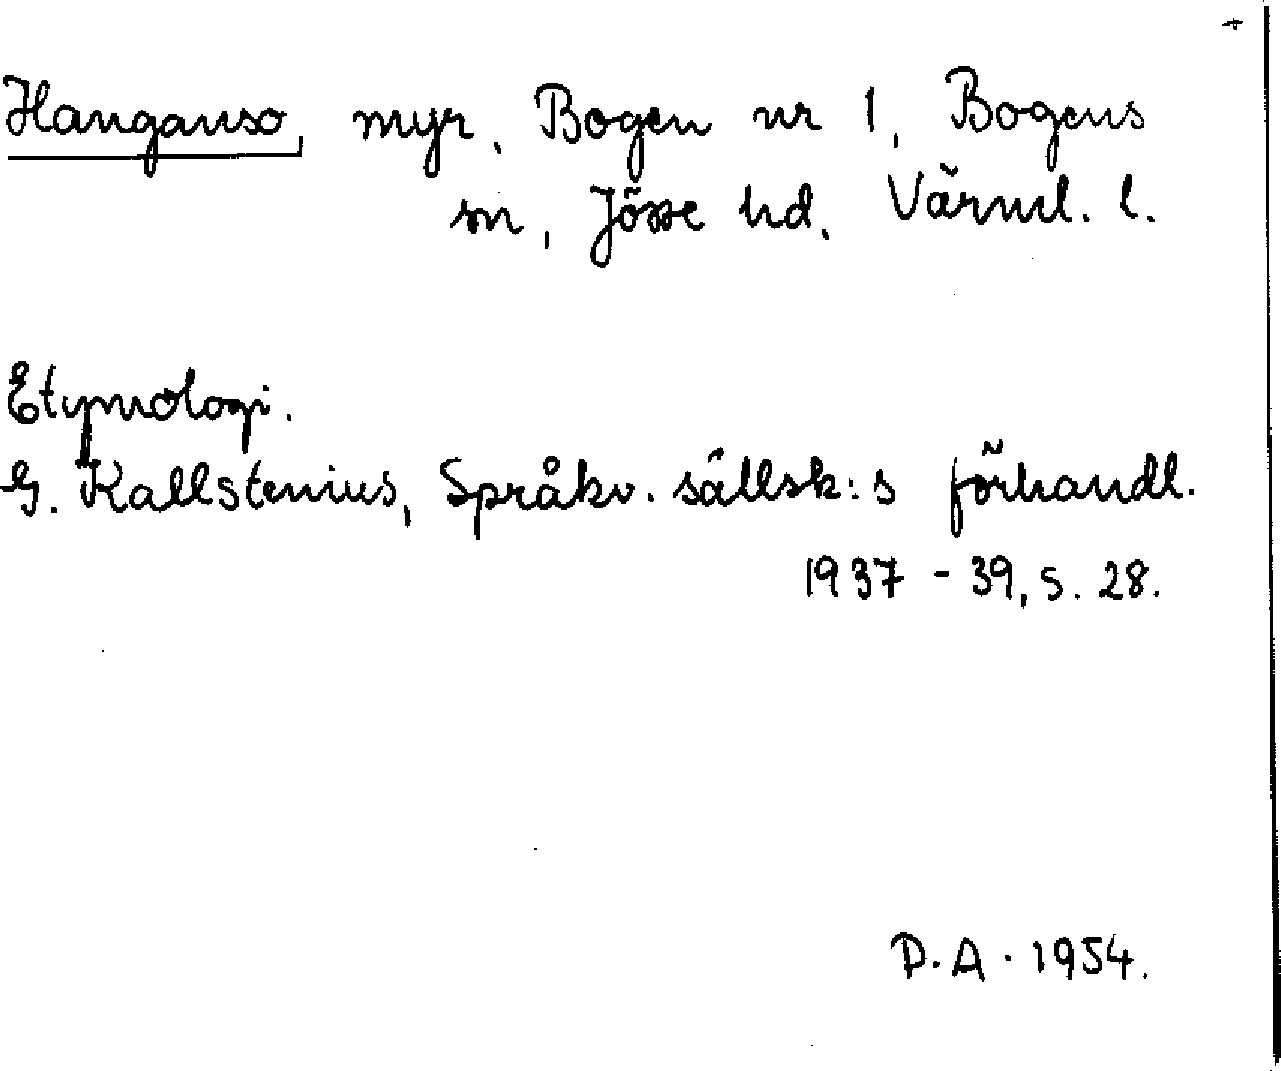 +
Hanganso, myr, Bogen nr 1, Bogens
sn, Jösse hd, Värml. l.
Etymologi.
G. Kallstenius, Språkv. sällsk:s förhandl.
1937 - 39, s. 28.
D. A. 1954.